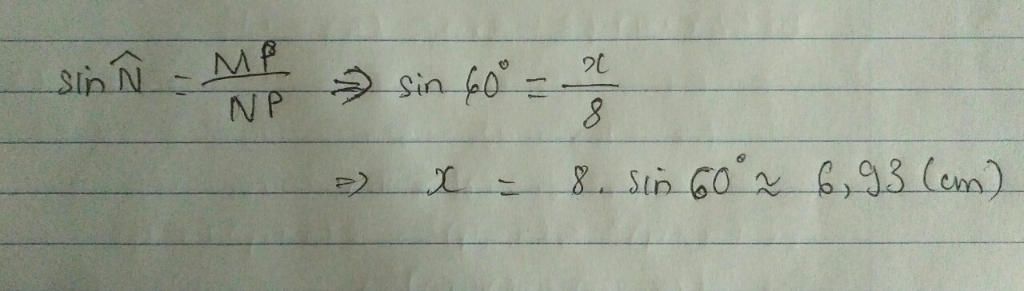 sin N̂ = MP/NP ⇒ sin 60° = x/8
⇒ x = 8. sin 60° ≈ 6,93 (cm)